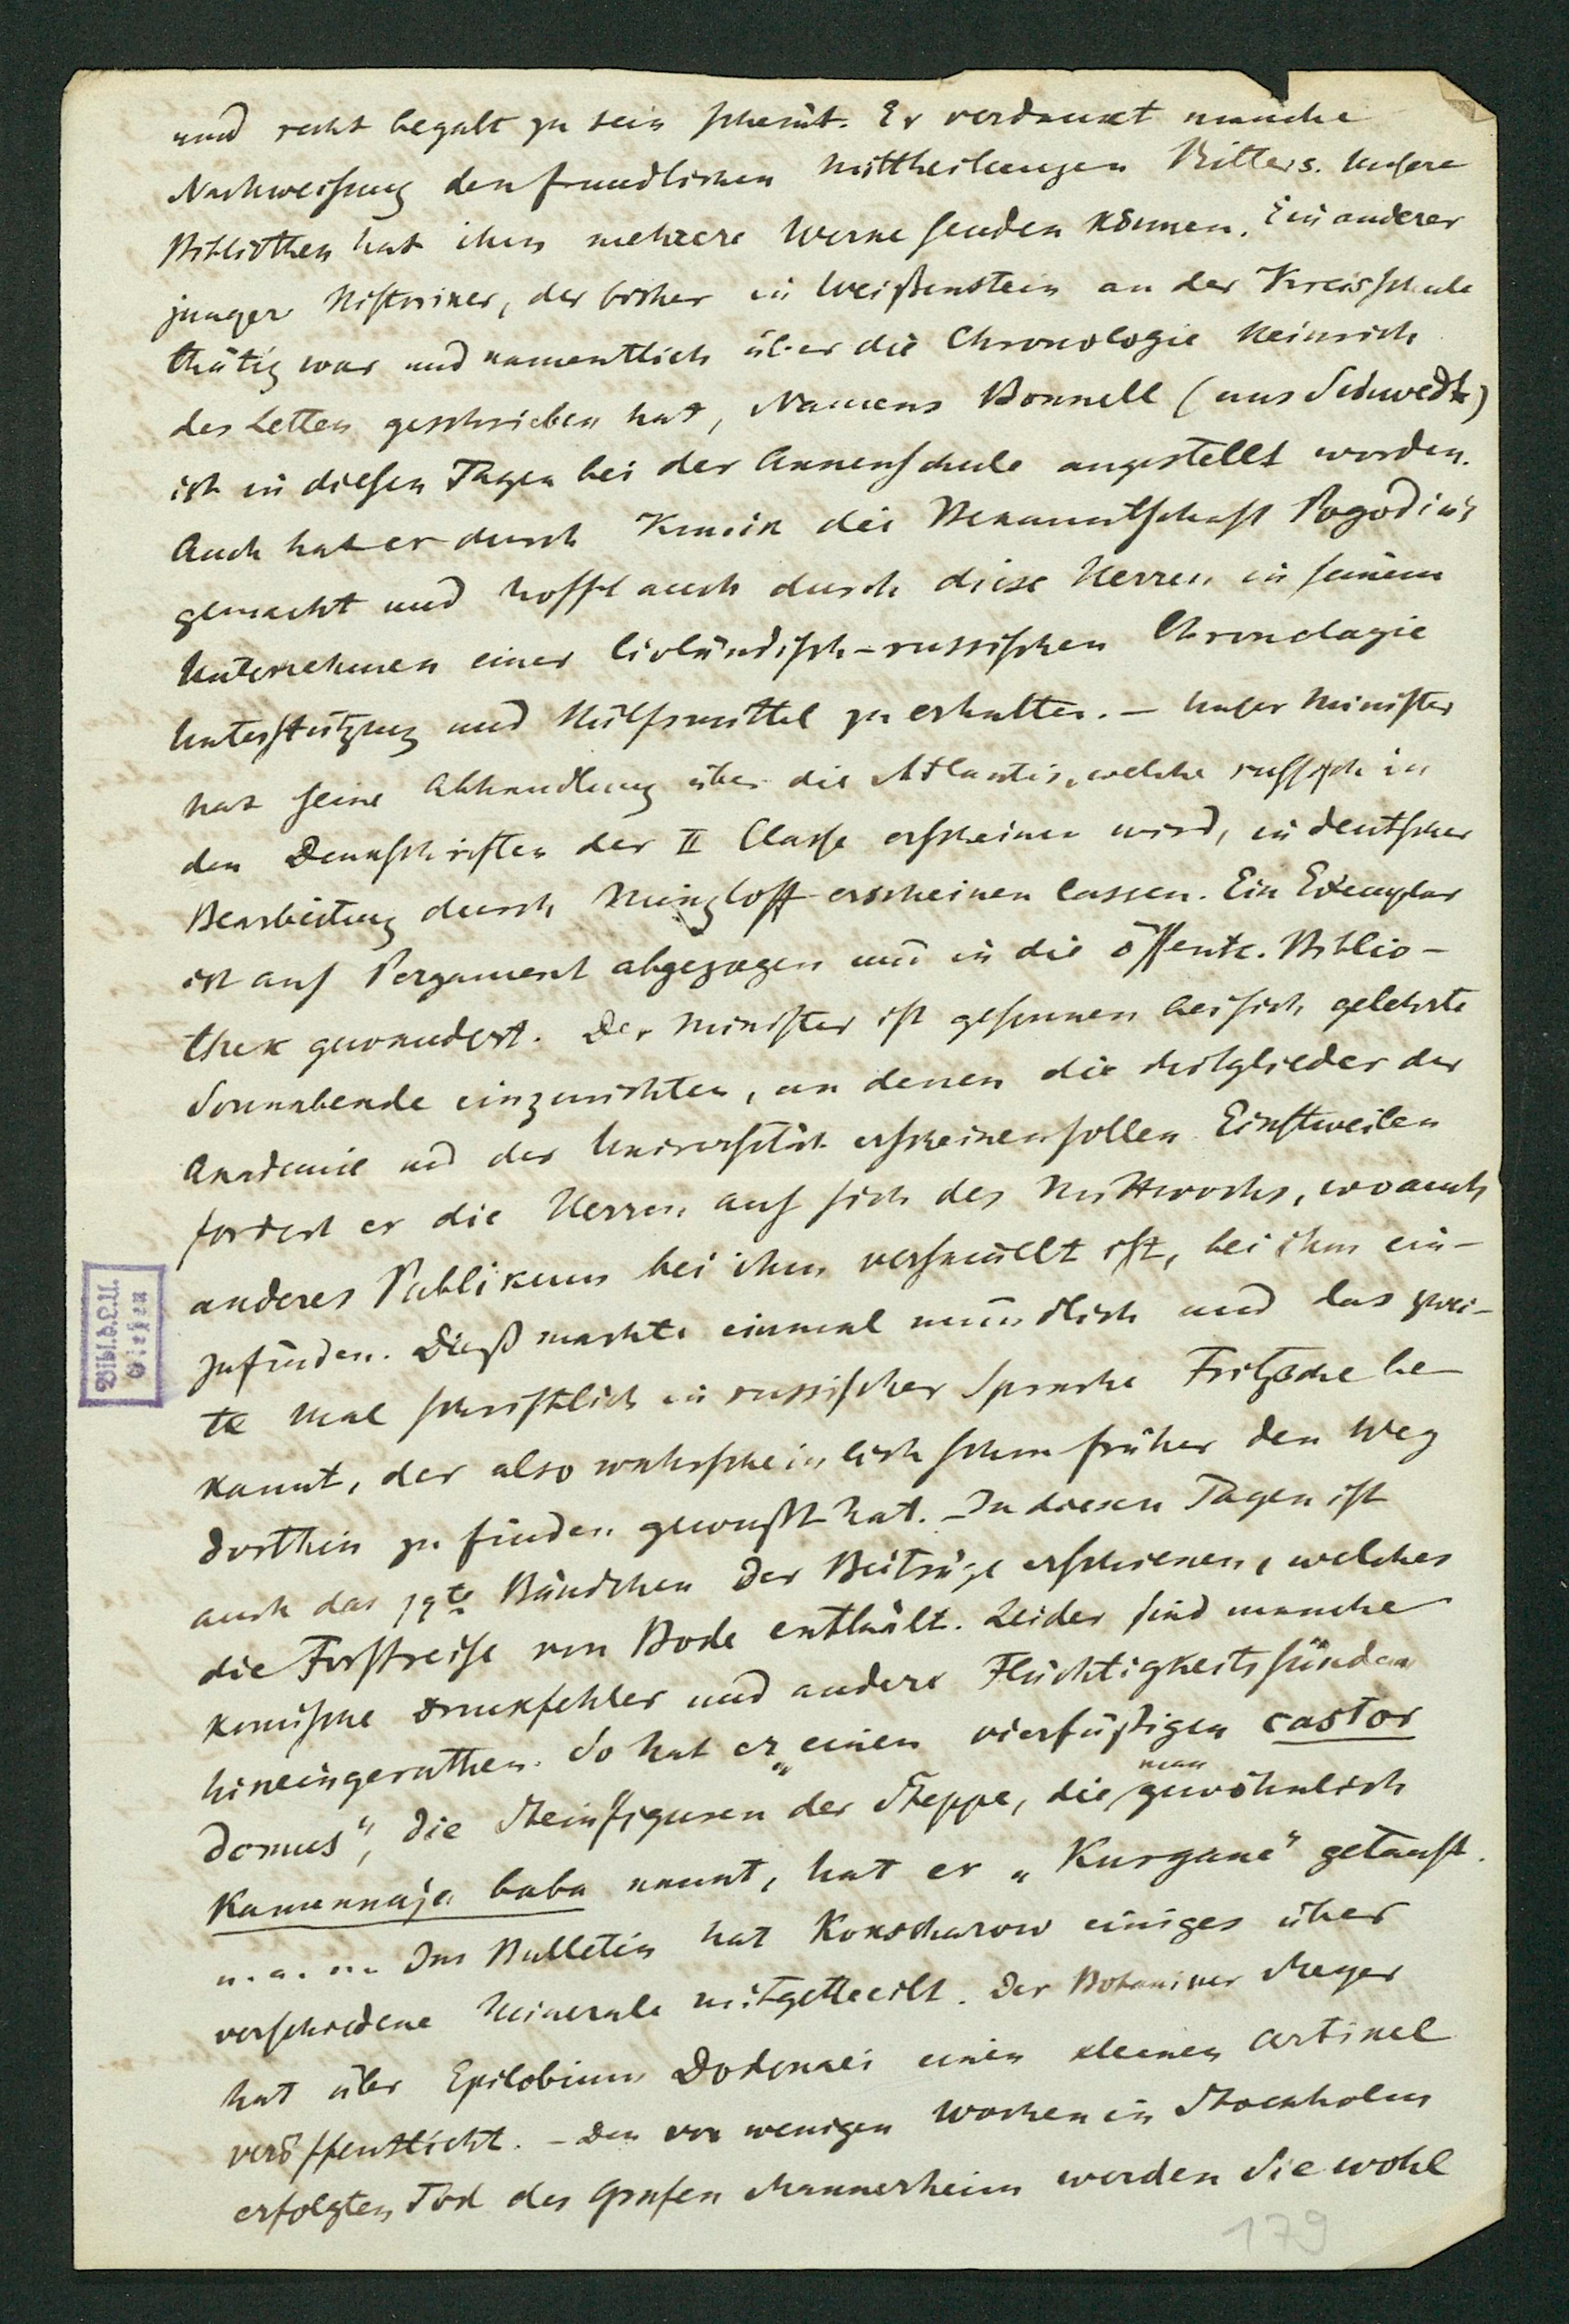 und recht begabt zu sein scheint. Er verdankt manche
Nachweisung den freundlichen Mittheilungen Ritters. Unsere
Bibliothek hat ihm mehrere Werke senden können. Ein anderer
junger Historiker, der bisher in Weißenstein an der Kreisschule
thätig war und namentlich über die Chronologie Heinrich
des Letten geschrieben hat, Namens Bonnell (aus Schwedt)
ist in diesen Tagen bei der Annenschule angestellt worden.
Auch hat er durch Kunik die Bekanntschaft Pogodin's
gemacht und hofft auch durch diese Herren in seinem
Unternehmen einer livländisch-russischen Chronologie
Unterstützung und Hülfsmittel zu erhalten. – Unser Minister
hat seine Abhandlung über die Atlantis, welche russisch in
den Denkschriften der II Classe erscheinen wird, in deutscher
Bearbeitung durch Minzloff erscheinen lassen. Ein Exemplar
ist auf Pergament abgezogen und in die öffentl. Biblio-
thek gewandert. Der Minister ist gesonnen bei sich gelehrte
Sonnabende einzurichten, an denen die Mitglieder der
Akademie und der Universität erscheinen sollen. Einstweilen
fordert er die Herren auf sich des Mittwochs, wo auch
anderes Publikum bei ihm versammelt ist, bei ihm ein-
zufinden. Dieß machte einmal mündlich und das zwei-
te Mal schriftlich in russischer Sprache Fritzsche be-
kannt, der also wahrscheinlich schon früher den Weg
dorthin zu finden gewußt hat. – In diesen Tagen ist
auch das 19te Bändchen der Beiträge erschienen, welches
die Forstreise von Bode enthält. Leider sind manche
komische Druckfehler und andere Flüchtigkeitssünden
hineingerathen. So hat er „einen vierfüßigen castor
domus", die Steinfiguren der Steppe, die man gewöhnlich
Kamennaja baba nennt, hat er „Kurgane" getauft.
u. a. m. Im Bulletin hat Kokscharow einiges über
verschiedene Minerale mitgetheilt. Der Botaniker Meyer
hat über Epilobium Dodonaei einen kleinen Artikel
veröffentlicht. – Den vor wenigen Wochen in Stockholm
erfolgten Tod des Grafen Mannerheim werden Sie wohl
179